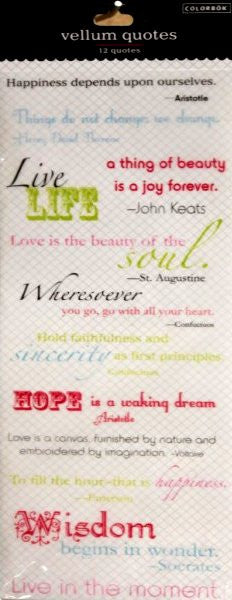 COLORBÖK
vellum quotes
12 quotes
Happiness depends upon ourselves.
—Aristotle
Things do not change; we change.
—Henry David Thoreau
Live
LIFE
a thing of beauty
is a joy forever.
—John Keats
Love is the beauty of the
soul.
—St. Augustine
Wheresoever
you go, go with all your heart.
—Confucius
Hold faithfulness and
sincerity as first principles.
Confucius
HOPE is a waking dream
Aristotle
Love is a canvas, furnished by nature and
embroidered by imagination. -Voltaire
To fill the hour—that is happiness.
—Emerson
Wisdom
begins in wonder.
—Socrates
Live in the moment.